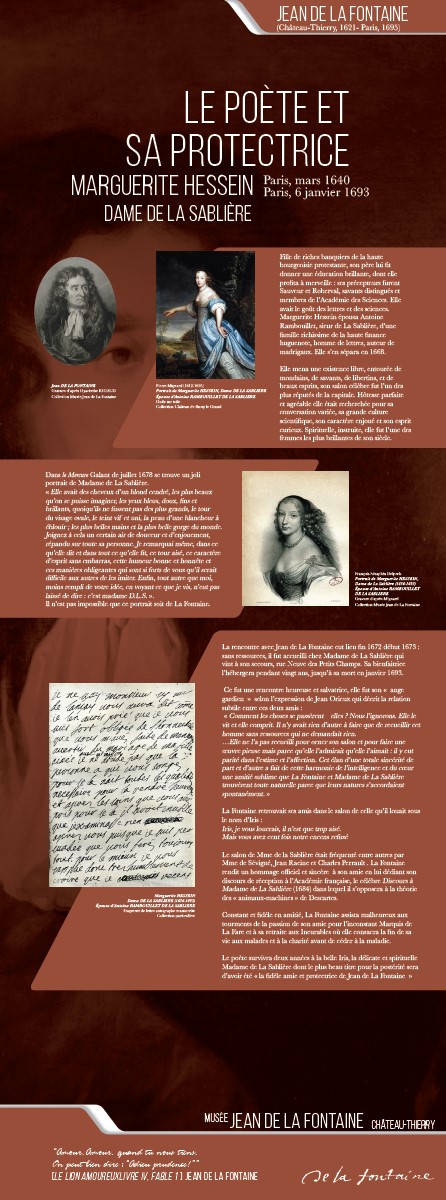 JEAN DE LA FONTAINE
(Château-Thierry, 1621- Paris, 1695)
LE POÈTE ET
SA PROTECTRICE
MARGUERITE HESSEIN
Paris, mars 1640
Paris, 6 janvier 1693
DAME DE LA SABLIÈRE
Fille de riches banquiers de la haute
bourgeoisie protestante, son père lui fit
donner une éducation brillante, dont elle
profita à merveille : ses précepteurs furent
Sauveur et Roberval, savants distingués et
membres de l'Académie des Sciences. Elle
avait le goût des lettres et des sciences.
Marguerite Hessein épousa Antoine
Rambouillet, sieur de La Sablière, d'une
famille richissime de la haute finance
huguenote, homme de lettres, auteur de
madrigaux. Elle s'en sépara en 1668.
Elle mena une existence libre, entourée de
mondains, de savants, de libertins, et de
beaux esprits, son salon célèbre fut l'un des
plus réputés de la capitale. Hôtesse parfaite
et agréable elle était recherchée pour sa
conversation variée, sa grande culture
scientifique, son caractère enjoué et son esprit
curieux. Spirituelle, instruite, elle fut l'une des
femmes les plus brillantes de son siècle.
Jean DE LA FONTAINE
Gravure d'après Hyacinthe RIGAUD
Collection Musée Jean de La Fontaine
Pierre Mignard (1612-1695)
Portrait de Marguerite HESSEIN, Dame DE LA SABLIERE
Épouse d'Antoine RAMBOUILLET DE LA SABLIERE
Huile sur toile
Collection Château de Bussy le Grand
Dans le Mercure Galant de juillet 1678 se trouve un joli
portrait de Madame de La Sablière.
« Elle avait des cheveux d'un blond cendré, les plus beaux
qu'on se puisse imaginer, les yeux bleus, doux, fins et
brillants, quoiqu'ils ne fussent pas des plus grands, le tour
du visage ovale, le teint vif et uni, la peau d'une blancheur à
éblouir ; les plus belles mains et la plus belle gorge du monde.
Joignez à cela un certain air de douceur et d'enjouement,
répandu sur toute sa personne. Je remarquai même, dans ce
qu'elle dit et dans tout ce qu'elle fit, ce tour aisé, ce caractère
d'esprit sans embarras, cette humeur bonne et honnête et
ces manières obligeantes qui sont si forts de vous qu'il serait
difficile aux autres de les imiter. Enfin, tout autre que moi,
moins rempli de votre idée, en voyant ce que je vis, n'eut pas
laissé de dire : c'est madame D.L.S. ».
Il n'est pas impossible que ce portrait soit de La Fontaine.
François Séraphin Delpech
Portrait de Marguerite HESSEIN,
Dame de La Sablière (1636-1693)
Épouse d'Antoine RAMBOUILLET
DE LA SABLIERE
Gravure d'après Mignard
Collection Musée Jean de La Fontaine
La rencontre avec Jean de La Fontaine eut lieu fin 1672 début 1673 :
sans ressources, il fut accueilli chez Madame de La Sablière qui
vint à son secours, rue Neuve des Petits Champs. Sa bienfaitrice
l'hébergera pendant vingt ans, jusqu'à sa mort en janvier 1693.
Ce fut une rencontre heureuse et salvatrice, elle fut son « ange
gardien » selon l'expression de Jean Orieux qui décrit la relation
subtile entre ces deux amis :
« Comment les choses se passèrent elles ? Nous l'ignorons. Elle le
vit et elle comprit. Il n'y avait rien d'autre à faire que de recueillir cet
homme sans ressources qui ne demandait rien.
…Elle ne l'a pas recueilli pour orner son salon et pour faire une
œuvre pieuse mais parce qu'elle l'admirait qu'elle l'aimait : il y eut
parité dans l'estime et l'affection. Cet élan d'une totale sincérité de
part et d'autre a fait de cette harmonie de l'intelligence et du cœur
une amitié sublime que La Fontaine et Madame de La Sablière
trouvèrent toute naturelle parce que leurs natures s'accordaient
spontanément. »
La Fontaine retrouvait ses amis dans le salon de celle qu'il louait sous
le nom d'Iris :
Iris, je vous louerais, il n'est que trop aisé.
Mais vous avez cent fois notre encens refusé
Le salon de Mme de la Sablière était fréquenté entre autres par
Mme de Sévigné, Jean Racine et Charles Perrault . La Fontaine
rendit un hommage officiel et sincère à son amie en lui dédiant son
discours de réception à l'Académie française, le célèbre Discours à
Madame de La Sablière (1684) dans lequel il s'opposera à la théorie
des « animaux-machines » de Descartes.
Constant et fidèle en amitié, La Fontaine assista malheureux aux
tourments de la passion de son amie pour l'inconstant Marquis de
La Fare et à sa retraite aux Incurables où elle consacra la fin de sa
vie aux malades et à la charité avant de céder à la maladie.
Le poète survivra deux années à la belle Iris, la délicate et spirituelle
Madame de La Sablière dont le plus beau titre pour la postérité sera
d'avoir été « la fidèle amie et protectrice de Jean de La Fontaine »
Marguerite HESSEIN
Dame DE LA SABLIERE (1636-1693)
Épouse d'Antoine RAMBOUILLET DE LA SABLIERE
Fragment de lettre autographe manuscrite
Collection particulière
MUSÉE JEAN DE LA FONTAINE CHÂTEAU-THIERRY
"Amour, Amour, quand tu nous tiens,
On peut bien dire : "Adieu prudence!""
(LE LION AMOUREUX LIVRE IV, FABLE 1) JEAN DE LA FONTAINE
De la fontaine